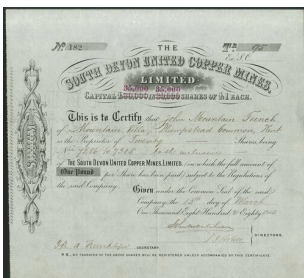 No. 182
THE
SOUTH DEVON UNITED COPPER MINES,
LIMITED
35,000 35,000
CAPITAL IN SHARES OF £1 EACH.
This is to Certify that John Mountain
of Mountain Villa, Plumpstead Common, Kent
is the Proprietor of Twenty Shares, being
Nos. to inclusive
in
THE SOUTH DEVON UNITED COPPER MINES, LIMITED, on which the full amount of
One Pound per Share has been paid, subject to the Regulations of
the said Company.
Given under the Common Seal of the said
Company, the 15th day of March
One Thousand Eight Hundred & Eighty
DIRECTORS.
SECRETARY.
N.B., NO TRANSFER OF THE ABOVE SHARES WILL BE REGISTERED UNLESS ACCOMPANIED BY THIS CERTIFICATE.